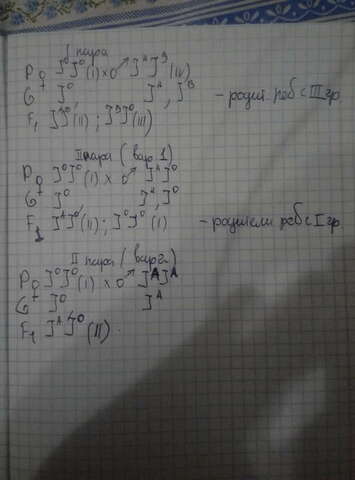 I пара
P ♀ J⁰J⁰(I) x ♂ JᴬJᴮ(IV)
G J⁰ Jᴬ, Jᴮ - родит. реб с III гр
F₁ JᴬJ⁰(II); JᴮJ⁰(III)
II пара (вар. 1)
P ♀ J⁰J⁰(I) x ♂ JᴬJ⁰
G J⁰ Jᴬ, J⁰
F₁ JᴬJ⁰(II); J⁰J⁰(I) - родители реб с I гр
II пара (вар 2)
P ♀ J⁰J⁰(I) x ♂ JᴬJᴬ
G J⁰ Jᴬ
F₁ JᴬJ⁰(II).